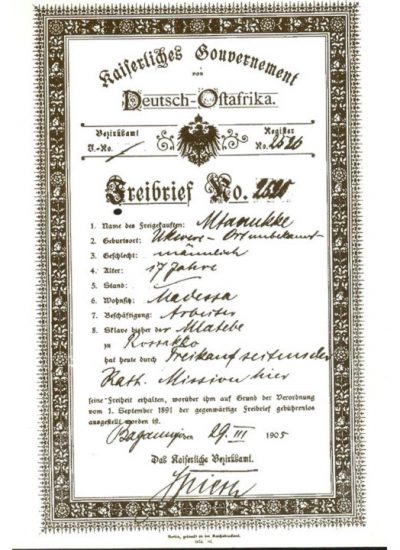 Kaiserliches Gouvernement
von
Deutsch-Ostafrika.
Bezirksamt
J.-No.
Register
No. 2520
Freibrief No.
1. Name des Freigekauften:
2. Geburtsort: Ukwere - Ort unbekannt
3. Geschlecht: männlich
4. Alter: 17 Jahre
5. Stand:
6. Wohnsitz: Madessa
7. Beschäftigung: Arbeiter
8. Sklave bisher der Mlatebe
zu
hat heute durch Freikauf seitens der
Kath. Mission hier
seine Freiheit erhalten, worüber ihm auf Grund der Verordnung
vom 1. September 1891 der gegenwärtige Freibrief gebührenlos
ausgestellt worden ist.
den 29 III 1905
Das Kaiserliche Bezirksamt.